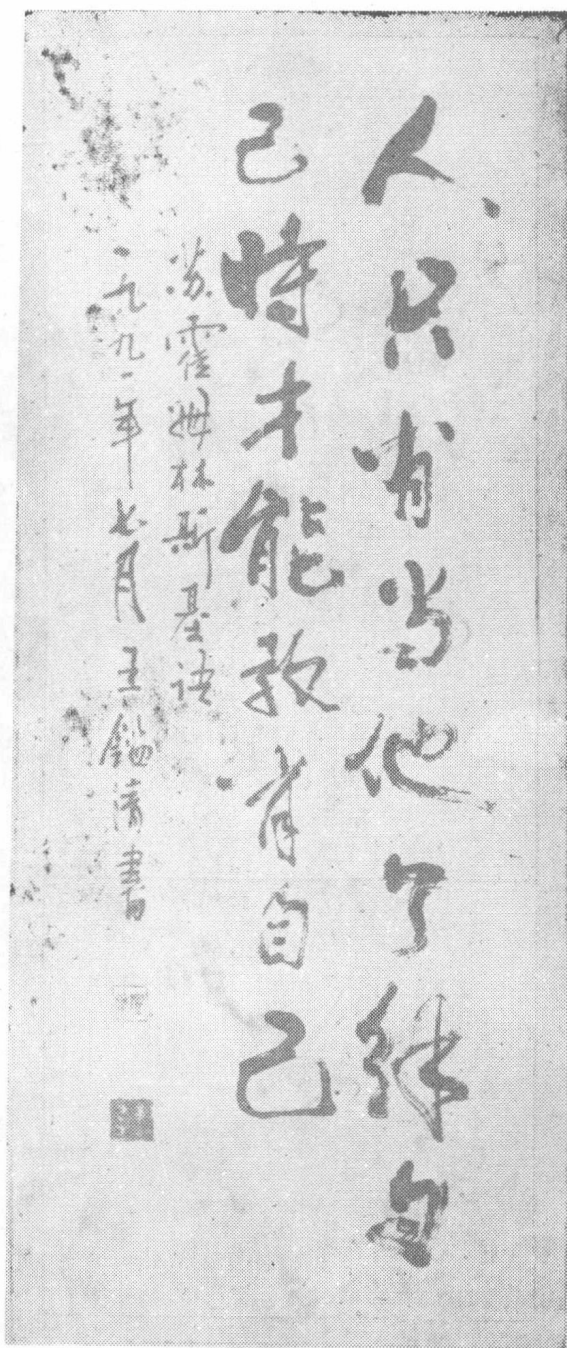 人只有当他了解自
己時才能教育自己
苏霍姆林斯基语
一九九一年七月王書